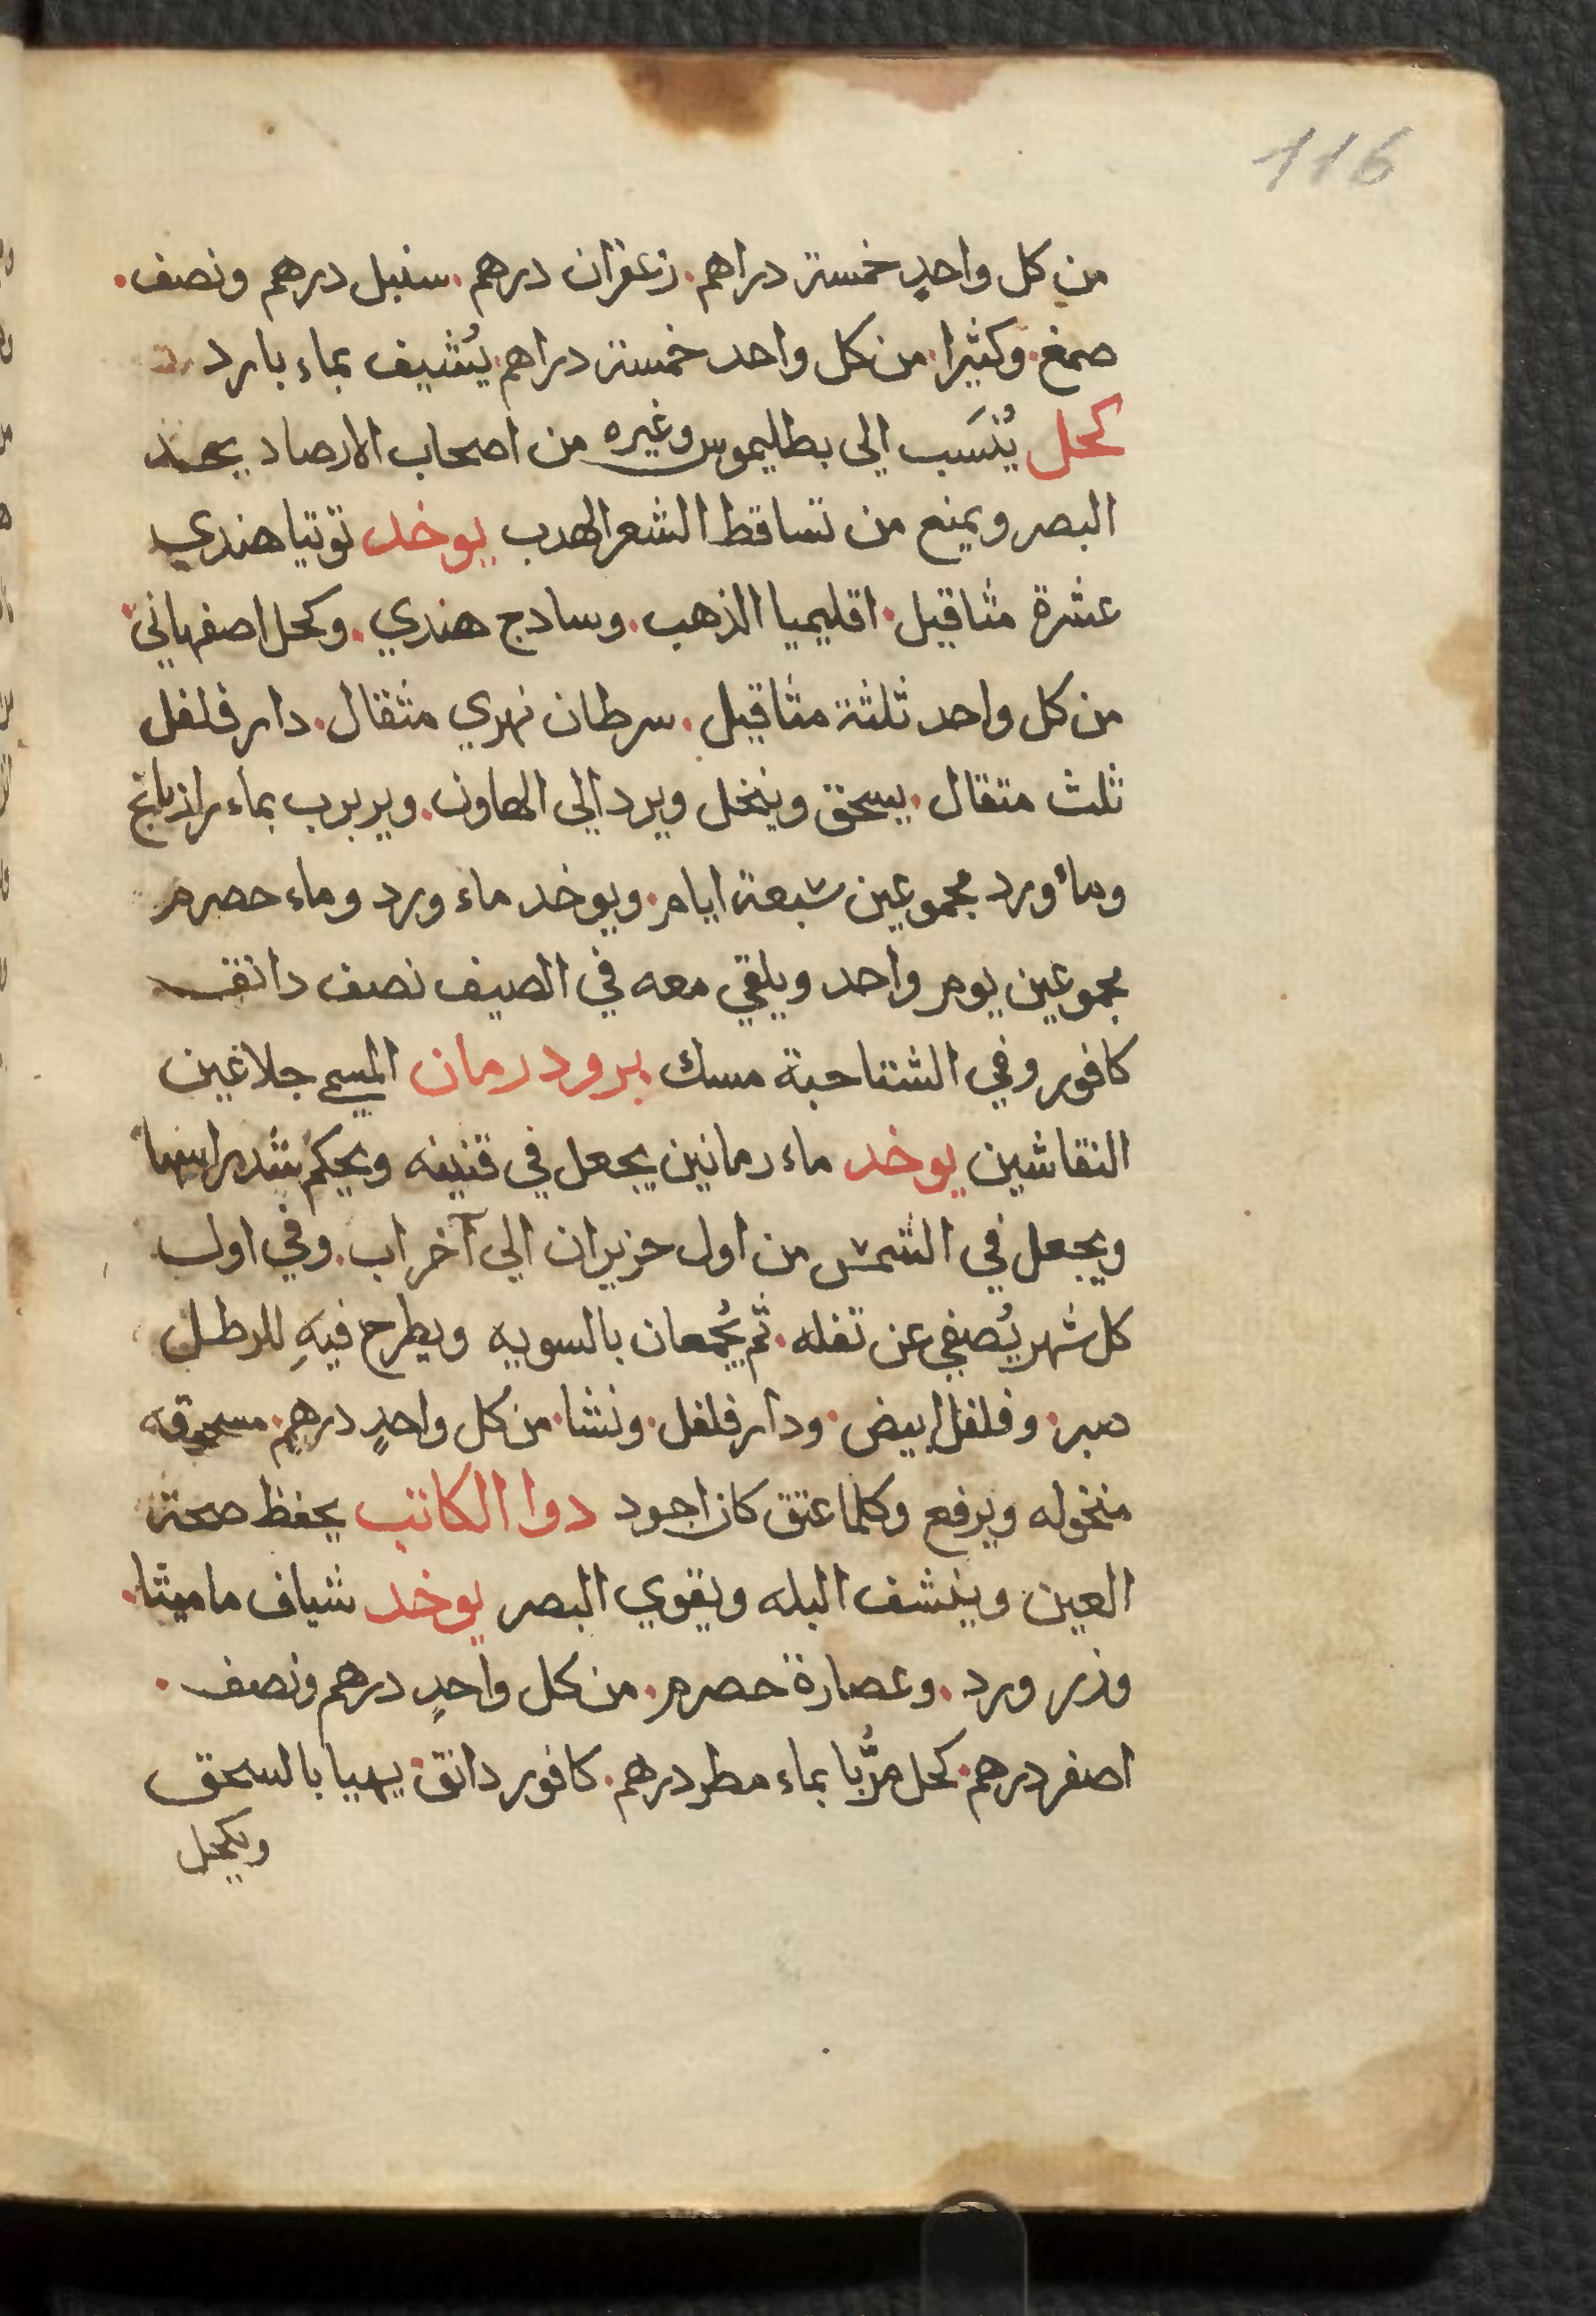 116
من كل واحدٍ خمسة دراهم. زعفران درهم. سنبل درهم ونصف.
صمغ. وكثيرا. من كل واحد خمسة دراهم. يُشيف بماء بارد
كحل يُنسَب الى بطليموس وغيره من اصحاب الارصاد يحد
البصر ويمنع من تساقط الشعر الهدب يوخد توتيا هندي
عشرة مثاقيل. اقليميا الذهب. وسادج هندي. وكحل اصفهاني.
من كل واحد ثلثة مثاقيل. سرطان نهري مثقال. دار فلفل
ثلث متقال. يسحق وينخل ويرد الي الهاون. ويربرب بماء رازيانج
وماء ورد مجموعين سبعة ايام. ويوخد ماء ورد وماء حصرم
مجموعين يوم واحد ويلقي معه في الصيف نصف دانق
كافور وفي الشتا حبة مسك. برود رمان المسمي جلا عين
النقاشين يوخد ماء رمانين يجعل في قنينه ويحكم شد راسها
ويجعل في الشمس من اول حزيران الي آخر اب. وفي اول
كل شهر يُصفي عن تفله. ثم يُجمعان بالسويه ويطرح فيهِ للرطل
صبر. وفلفل ابيض. ودار فلفل. ونشا. من كل واحدٍ درهم. مسحوقه
منخوله ويرفع وكلما عتق كان اجود دوا الكاتب يحفظ صحة
العين وينشف البله ويقوي البصر يوخد شياف ماميثا.
وزر ورد. وعصارة حصرم. من كل واحدٍ درهم ونصف.
اصفر درهم. كحل مُربّا بماء مطر درهم. كافور دانق. يهيا بالسحق
ويكحل